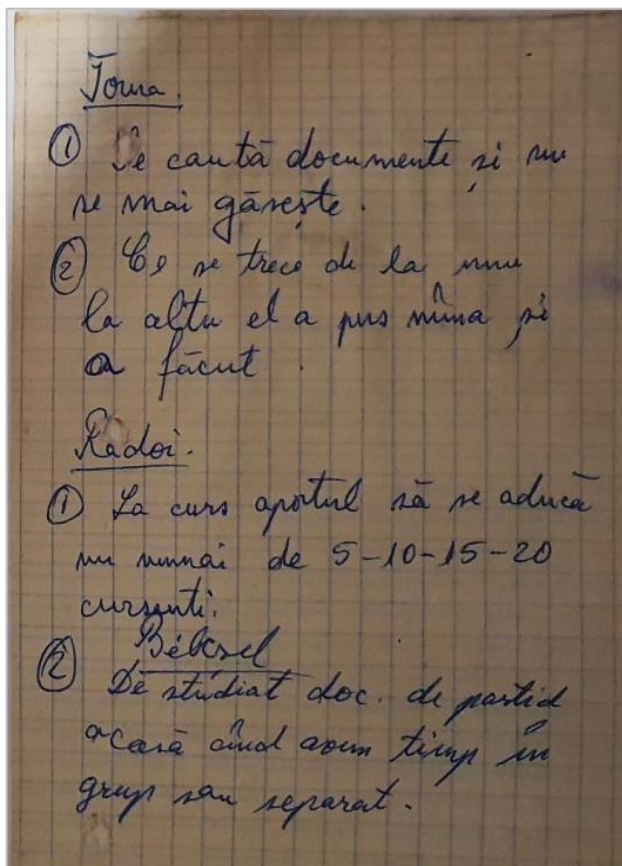 Toma.
① Se caută documente și nu
se mai găsește.
② Că se trece de la unu
la altu el a pus mîna și
a făcut.
Radoi.
① La curs aportul să se aducă
nu numai de 5-10-15-20
cursanți.
②
De studiat doc. de partid
acasă cînd avem timp în
grup sau separat.